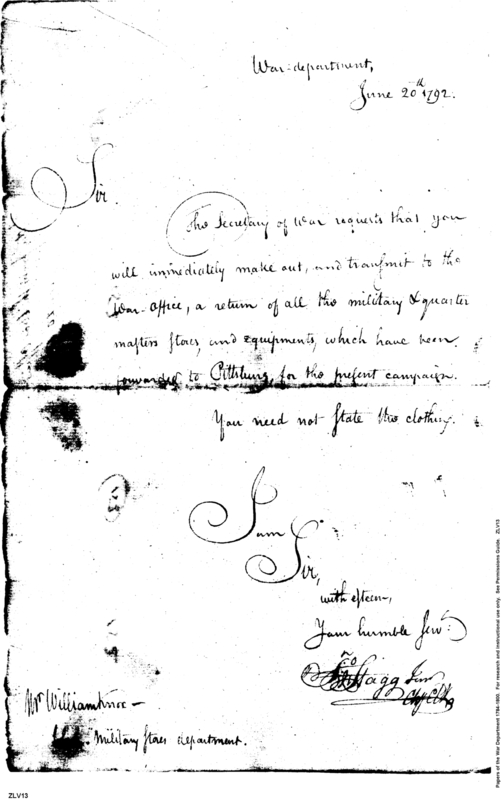 War-department,
June 20th 1792.
Sir.
The Secretary of War requests that you
will immediately make out, and transmit to the
War-Office, a return of all the military & quarter
masters stores, and equipments, which have been
forwarded to Pittsburg for the present campaign.
You need not state the clothing.
I am
Sir,
with esteem,
Your humble Servt.
Jno Stagg Junr
Chf Clk
Mr William Knox
Military stores department.
ZLV13
Papers of the War Department 1784-1800. For research and instructional use only. See Permissions Guide. ZLV13